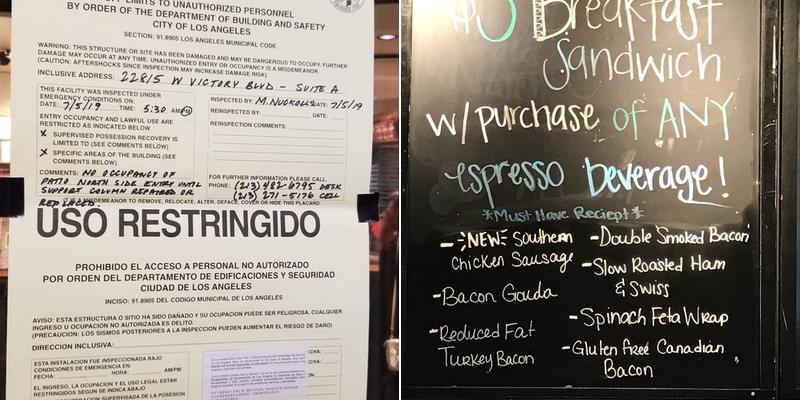 LIMITS TO UNAUTHORIZED PERSONNEL
BY ORDER OF THE DEPARTMENT OF BUILDING AND SAFETY
CITY OF LOS ANGELES
SECTION: 91.8905 LOS ANGELES MUNICIPAL CODE
WARNING: THIS STRUCTURE OR SITE HAS BEEN DAMAGED AND MAY BE DANGEROUS TO OCCUPY. FURTHER
DAMAGE MAY OCCUR AT ANY TIME. UNAUTHORIZED ENTRY OR OCCUPANCY IS A MISDEMEANOR.
(CAUTION: AFTERSHOCKS SINCE INSPECTION MAY INCREASE DAMAGE RISK).
INCLUSIVE ADDRESS: 22815 W VICTORY BLVD - SUITE A
THIS FACILITY WAS INSPECTED UNDER
EMERGENCY CONDITIONS ON:
DATE: 7/5/19 TIME: 5:30 AM/PM
ENTRY OCCUPANCY AND LAWFUL USE ARE
RESTRICTED AS INDICATED BELOW
X SUPERVISED POSSESSION RECOVERY IS
LIMITED TO (SEE COMMENTS BELOW).
X SPECIFIC AREAS OF THE BUILDING (SEE
COMMENTS BELOW).
COMMENTS: NO OCCUPANCY OF
PATIO NORTH SIDE ENTRY UNTIL
SUPPORT COLUMN REPAIRED OR
REPLACED.
INSPECTED BY: M. NUCKOLLS DATE: 7/5/19
REINSPECTED BY: DATE:
REINSPECTION COMMENTS:
FOR FURTHER INFORMATION PLEASE CALL.
PHONE: (213) 482-6795 DESK
(213) 271-5176 CELL
IT IS A MISDEMEANOR TO REMOVE, RELOCATE, ALTER, DEFACE, COVER OR HIDE THIS PLACARD.
USO RESTRINGIDO
PROHIBIDO EL ACCESO A PERSONAL NO AUTORIZADO
POR ORDEN DEL DEPARTAMENTO DE EDIFICACIONES Y SEGURIDAD
CIUDAD DE LOS ANGELES
INCISO: 91.8905 DEL CODIGO MUNICIPAL DE LOS ANGELES
AVISO: ESTA ESTRUCTURA O SITIO HA SIDO DAÑADO Y SU OCUPACION PUEDE SER PELIGROSA. CUALQUIER
INGRESO U OCUPACION NO AUTORIZADA ES DELITO.
(PRECAUCION: LOS SISMOS POSTERIORES A LA INSPECCION PUEDEN AUMENTAR EL RIESGO DE DAÑO)
DIRECCION INCLUSIVE:
ESTA INSTALACION FUE INSPECCIONADA BAJO
CONDICIONES DE EMERGENCIA EN:
FECHA: HORA: AM/PM
EL INGRESO, LA OCUPACION Y EL USO LEGAL ESTAN
RESTRINGIDOS SEGUN SE INDICA ABAJO
$3 Breakfast
Sandwich
w/purchase of ANY
espresso beverage!
*Must Have Reciept*
- NEW Southern
Chicken Sausage
- Bacon Gouda
- Reduced Fat
Turkey Bacon
- Double Smoked Bacon
- Slow Roasted Ham
& Swiss
- Spinach Feta Wrap
- Gluten free Canadian
Bacon